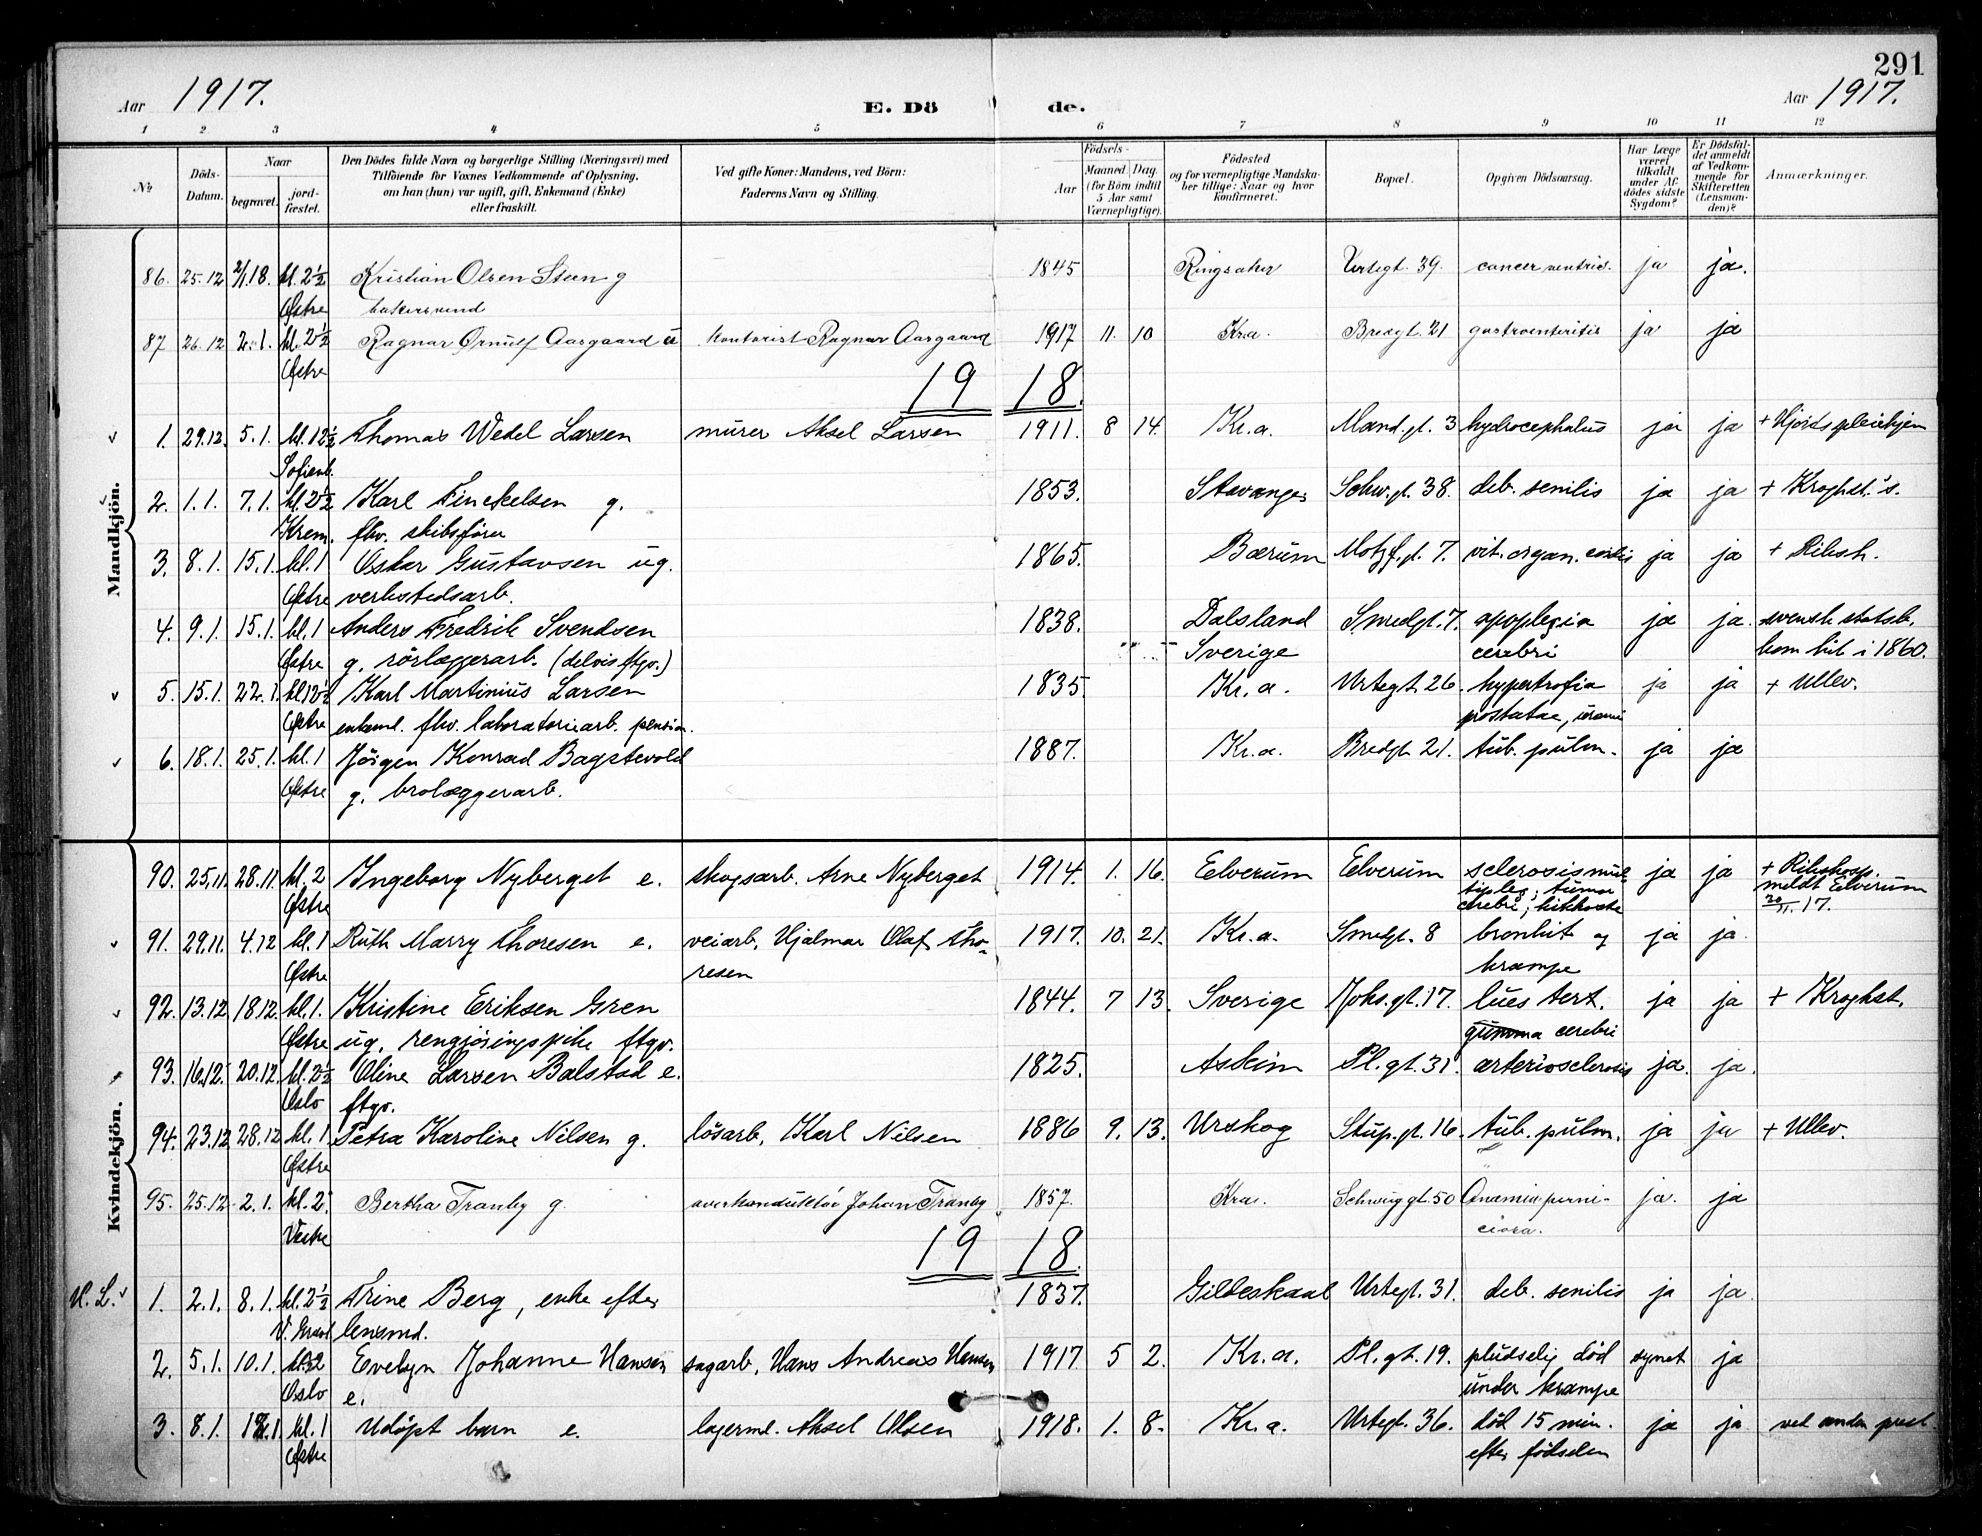 291
Aar 1917.
E. Dö de.
Aar 1917.
1 2 3 4 5 6 7 8 9 10 11 12
No
Döds-Datum.
Naar
begravet.
jord-fæstet.
Den Dödes fulde Navn og borgerlige Stilling (Næringsvei) med
Tilföiende for Voxnes Vedkommende af Oplysning,
om han (hun) var ugift, gift, Enkemand (Enke)
eller fraskilt.
Ved gifte Koner: Mandens, ved Börn:
Faderens Navn og Stilling.
Födsels-
Aar
Maaned. Dag.
(for Börn indtil
5 Aar samt
Værnepligtige).
Födested
og for værnepligtige Mandska-
ber tillige: Naar og hvor
konfirmeret.
Bopæl.
Opgiven Dödsaarsag.
Har Læge
været
tilkaldt
under Af-
dödes sidste
Sygdom?
Er Dödsfal-
det anmeldt
af Vedkom-
mende for
Skifteretten
(Lensman-
den)?
Anmærkninger.
Mandkjön.
86. 25.12 2/1.18. kl. 2½ Kristian Olsen Steen g 1845 Ringsaker Urtegt. 39. cancer ventric. ja ja.
Østre bakersvend
87 26.12 2.1. kl. 2½ Ragnar Ørnulf Aasgaard u kontorist Ragnar Aasgaard 1917 11. 10 Kra. Bredgt. 21 gastroenteritis ja ja
Østre
19 18.
1. 29.12. 5.1. kl. 12½ Thomas Wedel Larsen murer Aksel Larsen 1911. 8 14. Kr.a. Mand.gt. 3 hydrocephalus ja ja + Hjorts pleiehjem
Sofienb.
2. 1.1. 7.1. kl. 2½ Karl Finckelsen g. 1853. Stavanger Schw.gt. 38. deb. senilis ja ja + Kroghst.'s.
Krem. fhv. skibsfører
3. 8.1. 15.1. kl. 1 Oskar Gustavsen ug. 1865. Bærum Motzf.gt. 7. vit. organ. cordis ja ja + Riksh.
Østre verkstedsarb.
4. 9.1. 15.1. kl. 1 Anders Fredrik Svendsen 1838. Dalsland Smedgt. 7. apoplexia ja ja. svensk statsb.
Østre g. rörlæggerarb. (delvis ftgv.) Sverige cerebri kom hit i 1860.
5. 15.1. 22.1. kl 12½ Karl Martinius Larsen 1835. Kr.a. Urtegt. 26. hypertrofia ja ja + Ullev.
Østre enkeml. fhv. laboratoriearb. pension. postatae, uræmi
6. 18.1. 25.1. kl. 1 Jörgen Konrad Bagstevold 1887. Kr.a. Bredgt. 21. tub. pulm. ja ja
Østre g. brolæggerarb.
Kvindekjön.
90. 25.11. 28.11. kl. 2 Ingeborg Nyberget e. skogsarb. Arne Nyberget 1914. 1. 16. Elverum Elverum sclerosis mul- ja ja + Rikshosp.
Østre tiplex; tumor meldt Elverum
cerebri; kikhoste 30/11. 17.
91. 29.11. 4.12 kl. 1 Ruth Marry Thoresen e. veiarb. Hjalmar Olaf Tho- 1917. 10. 21. Kr.a. Smedgt. 8 bronkit og ja ja.
Østre resen krampe
92. 13.12. 18.12. kl. 1. Kristine Eriksen Gren 1844. 7 13. Sverige Johs.gt. 17. lues tert. ja ja + Kroghst.
Østre ug. rengjøringspike ftgv. gumma cerebri
93. 16.12. 20.12. kl. 2½ Oline Larsen Balstad e. 1825. Askim Pl.gt. 31. arteriosclerosis ja. ja.
Oslo ftgv.
94. 23.12 28.12 kl. 1 Petra Karoline Nilsen g. lösarb. Karl Nilsen 1886 9. 13. Urskog Stup.gt. 16. tub. pulm. ja ja + Ullev.
Østre
95. 25.12. 2.1. kl. 2. Bertha Tranby g. overkonduktør Johan Tranby 1857. Kra. Schweiggt. 50 Anæmia perni- ja. ja
Vestre ciosa.
19 18.
U. L. 1. 2.1. 8.1. kl. 2½ Trine Berg, enke efter 1837. Gildeskaal Urtegt. 31. deb. senilis ja ja.
lensmd.
2. 5.1. 10.1. Evelyn Johanne Hansen sagarb. Hans Andreas Hansen 1917 5 2. Kr.a. Pl.gt. 19. pludselig död synet ja
Oslo e. under krampe
3. 8.1. kl. 1 Udöpt barn e. lagerml. Aksel Olsen 1918. 1. 8. Kr.a. Urtegt. 36. död 15 min. ja ja. ved anden prest.
Østre efter födselen